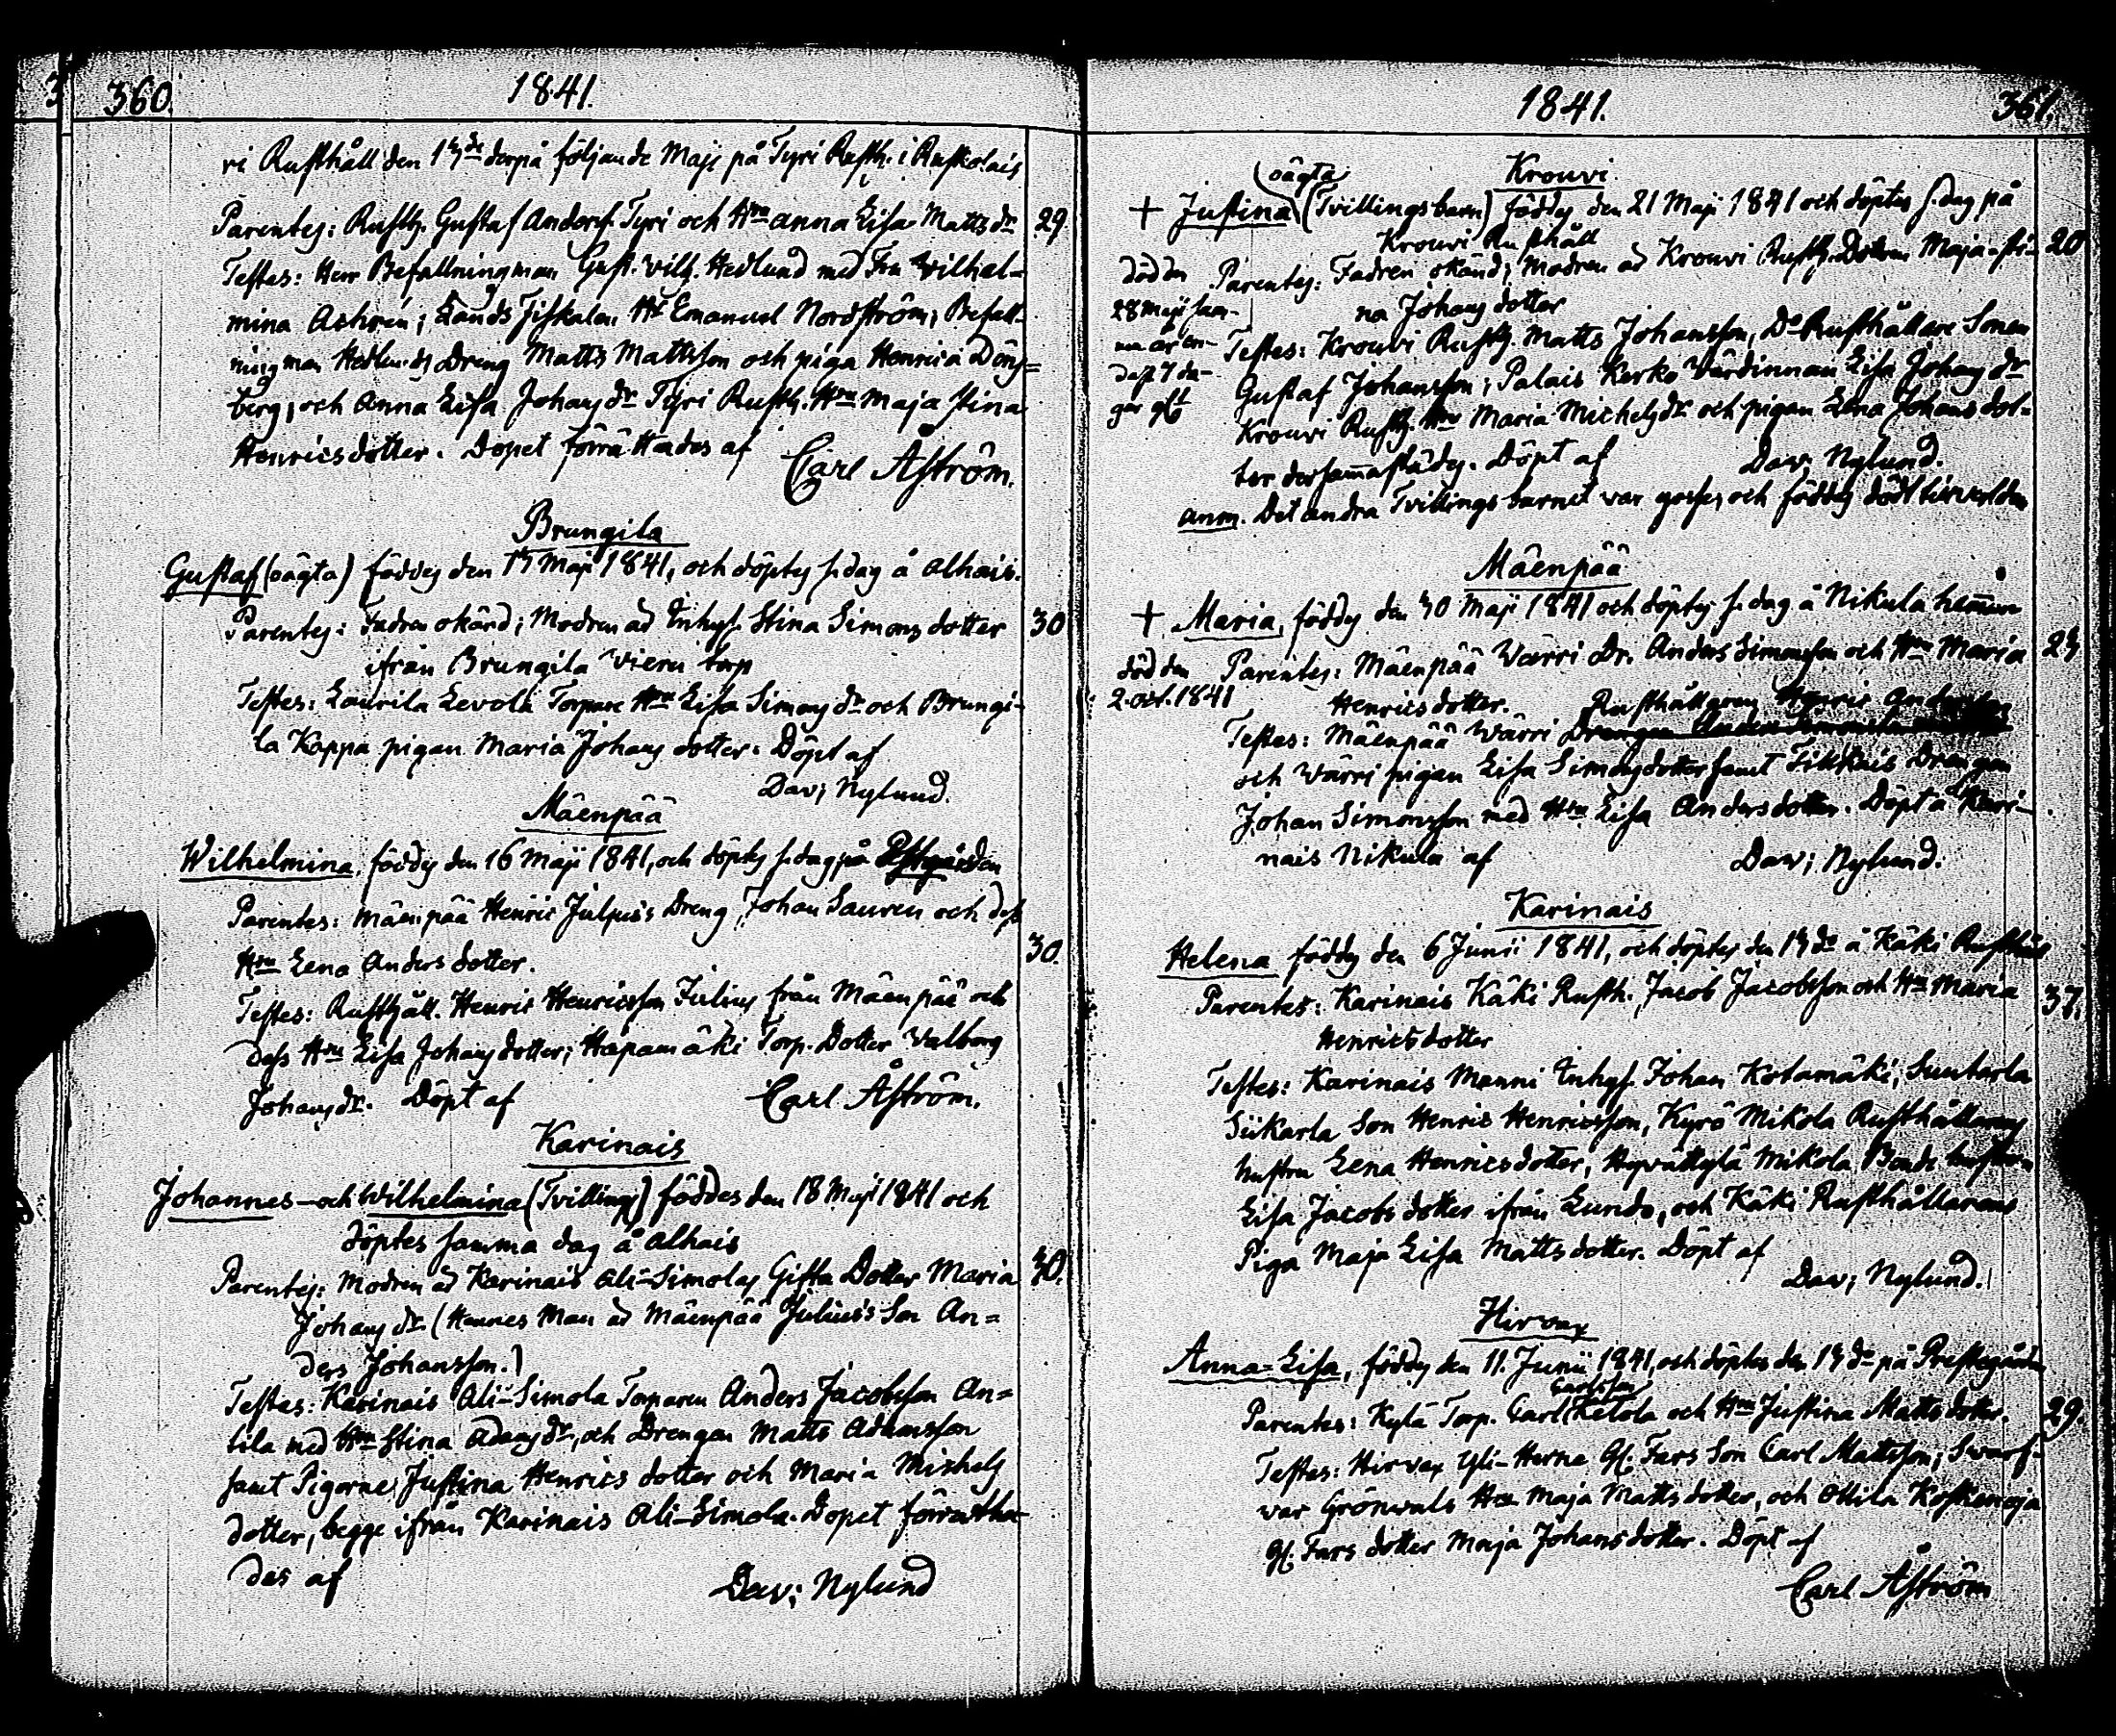 360.
1841.
ri Rusthåll den 13de derpå följande Maji på Tyri Rusth. i Ruskolais
Parentes: Rusth. Gustaf Anderss. Tyri och Hru Anna Lisa Matts dr 29.
Testes: Herr Befallningsman Gust. Wilh. Hedlund med Fru Wilhel-
mina Achrén; Lands Fiskalen Hr Emanuel Nordström, Befall-
ningsman Hedlunds Dreng Matts Mattsson och piga Henrica
berg, och Anna Lisa Johans dr Tyri Rusth. Hru Maja Stina
Henricsdotter. Dopet förrättades af
Carl Åström.
Brungila
Gustaf (oägta) föddes den 13 Maji 1841, och döptes s. dag å Alhais.
Parentes: Fadren okänd; Modren är Inhys. Stina Simons dotter 30
ifrån Brungila Vieru torp
Testes: Laurila Levola Torpare Hru Lisa Simons dr och Brungi-
la Kappa pigan Maria Johans dotter. Döpt af
Dav; Nylund.
Mäenpää
Wilhelmina, föddes den 16 Maji 1841, och döptes s. dag på
Parentes: Mäenpää Henric Julius's Dreng Johan Sauren och dess
Hru Lena Anders dotter. 30.
Testes: Rusthåll. Henric Henricsson Julius från Mäenpää och
dess Hru Lisa Johans dotter; Hapamäki Torp. Dotter Valborg
Johans dr. Döpt af
Carl Åström.
Karinais
Johannes och Wilhelmina (Tvillingr) föddes den 18 Maji 1841 och
döptes samma dag å Alhais
Parentes: Modren är Karinais Ali-Simolas Gifta Dotter Maria 30.
Johans dr. (Hennes Man är Mäenpää Julius's Son An-
ders Johansson.)
Testes: Karinais Ali-Simola Torparen Anders Jacobsson An-
tila med Hru Stina Adams dr, och Drengen Matts Adamsson
samt Pigorne Justina Henrics dotter och Maria Michels
dotter, begge ifrån Karinais Ali-Simola. Dopet förrätta-
des af
Dav; Nylund
1841.
361.
Krouvi
oägta
+ Justina (Tvillingsbarn) föddes den 21 Maji 1841 och döptes s. dag på
Krouvi Rusthåll
Parentes: Fadren okänd; Modren är Krouvi Rusth. Dottren Maja Sti- 20
na Johans dotter
död den
28 Maji sam-
ma år en-
dast 7 da-
gar gl.
Testes: Krouvi Rusth. Matts Johansson, Do Rusthållare Sonen
Gustaf Johansson; Palais Kerko Värdinnan Lisa Johans dr
Krouvi Rusth. Hru Maria Michels dr och pigan Lena Johans dot-
ter dersammastädes. Döpt af
Dav; Nylund.
Anm. Det andra Tvillingsbarnet var gosse, och föddes död till verlden
Mäenpää
+ Maria, föddes den 30 Maji 1841 och döptes s. dag å Nikula hemman
Parentes: Mäenpää Wärri Dr. Anders Simonsson och Hru Maria
Henricsdotter.
död den
2. oct. 1841
Rusthållaren Henric Andersson
Testes: Mäenpää Wärri
och Wärri pigan Lisa Simonsdotter samt Tikkais Drengen
Johan Simonsson med Hru Lisa Andersdotter. Döpt å Kari-
nais Nikula af
Dav; Nylund.
Karinais
Helena föddes den 6 Junii 1841, och döptes den 13 do å Käki Rusthåll
Parentes: Karinais Käki Rusth. Jacob Jacobsson och Hru Maria 37.
Henricsdotter
Testes: Karinais Manni Inhys. Johan Kotamäki, Suutarla
Siikarla Son Henric Henricsson, Kyrö Mikola Rusthållarens
hustru Lena Henricsdotter, Hypättylä Mikola Bonde hustrun
Lisa Jacobs dotter ifrån Lundo, och Käki Rusthållarens
Piga Maja Lisa Mattsdotter. Döpt af
Dav; Nylund.
Hirvax
Anna-Lisa, föddes den 11. Junii 1841, och döptes den 13 do på Prestegården
Carlsson
Parentes: Kylä Torp. Carl Ketola och Hru Justina Matts dotter. 29.
Testes: Hirvax Yli-Herne Gl. Fars Son Carl Mattsson; Swarf-
var Grönwals Hru Maja Matts dotter, och Ottila Koskenoja
Gl. Fars dotter Maja Johansdotter. Döpt af
Carl Åström